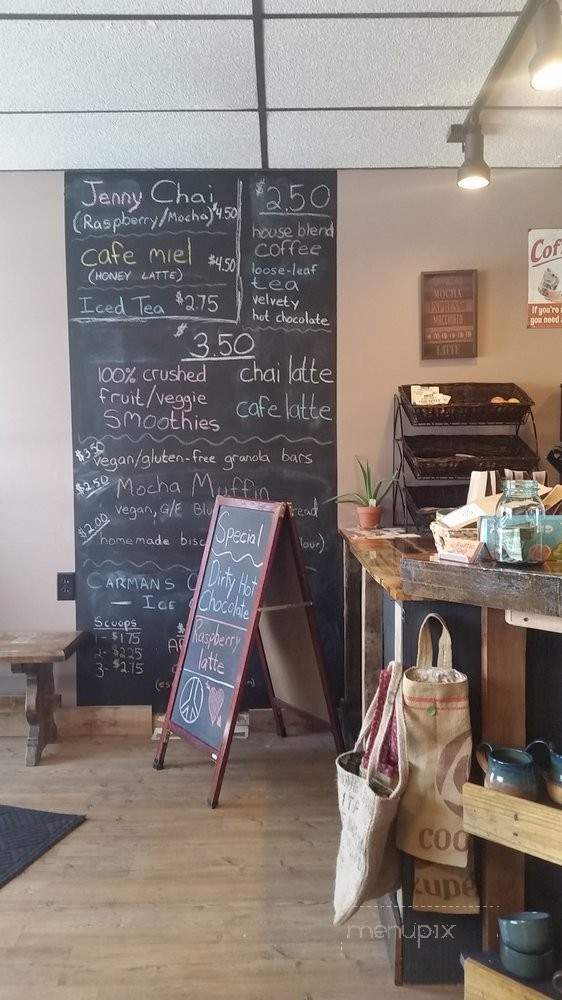 Jenny Chai
(Raspberry/Mocha) $4.50
cafe miel
(HONEY LATTE) $4.50
Iced Tea $2.75
$2.50
house blend
coffee
loose-leaf
tea
velvety
hot chocolate
$3.50
100% crushed
fruit/veggie
smoothies
chai latte
cafe latte
$3.50 vegan/gluten-free granola bars
$2.50 Mocha Muffin
vegan, G/F
$2.00
homemade
CARMAN'S
ICE
Scoops
1- $1.75
2- $2.25
3- $2.75
Special
Dirty Hot
Chocolate
Raspberry
latte
MOCHA
LATTE
If you're
you need
menupix